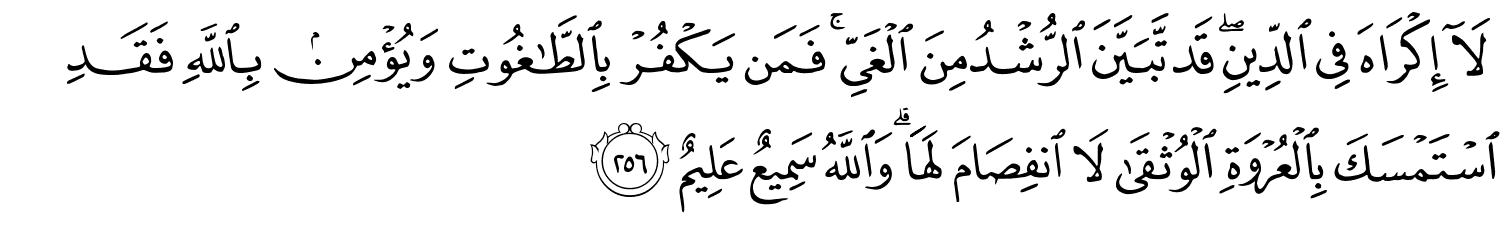 لَآ إِكْرَاهَ فِى ٱلدِّينِ ۖ قَد تَّبَيَّنَ ٱلرُّشْدُ مِنَ ٱلْغَىِّ ۚ فَمَن يَكْفُرْ بِٱلطَّـٰغُوتِ وَيُؤْمِنۢ بِٱللَّهِ فَقَدِ
ٱسْتَمْسَكَ بِٱلْعُرْوَةِ ٱلْوُثْقَىٰ لَا ٱنفِصَامَ لَهَا ۗ وَٱللَّهُ سَمِيعٌ عَلِيمٌ ٢٥٦